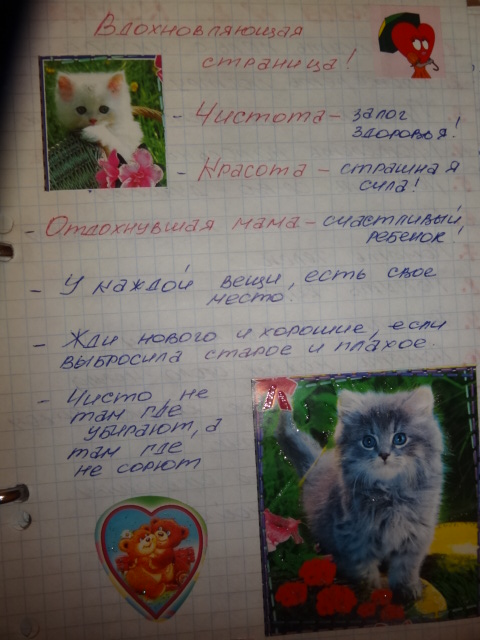 Вдохновляющая
страница!
- Чистота - залог
здоровья!
- Красота - страшная
сила!
- Отдохнувшая мама - счастливый
ребенок!
- У каждой вещи, есть свое
место.
- Жди нового и хорошие, если
выбросила старое и плахое.
- Чисто не
там где
убирают, а
там где
не сорют